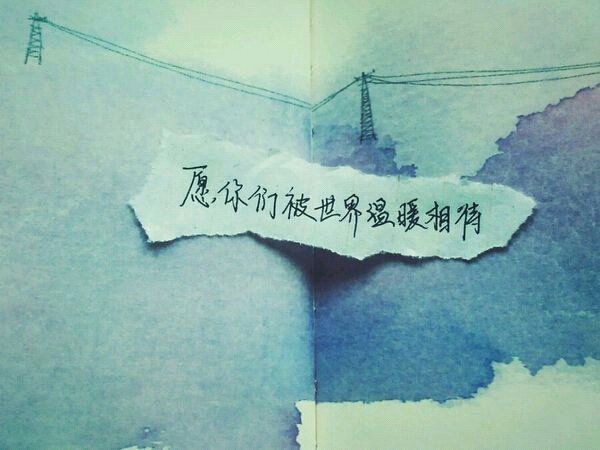 愿你们被世界温暖相待